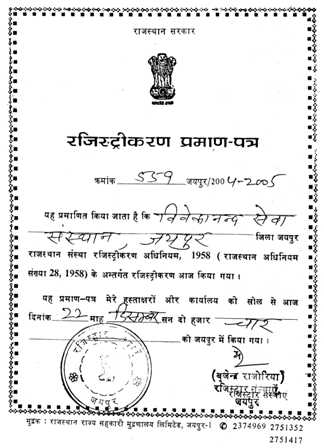 राजस्थान सरकार
रजिस्ट्रीकरण प्रमाण-पत्र
क्रमांक 559 जयपुर/2004-2005
यह प्रमाणित किया जाता है कि विवेकानन्द सेवा
संस्थान जयपुर जिला जयपुर
राजस्थान संस्था रजिस्ट्रीकरण अधिनियम, 1958 (राजस्थान अधिनियम
संख्या 28, 1958) के अन्तर्गत रजिस्ट्रीकरण आज किया गया।
यह प्रमाण-पत्र मेरे हस्ताक्षरों और कार्यालय की सील से आज
दिनांक 22 माह दिसम्बर सन दो हजार चार
को जयपुर में किया गया।
(बृजेन्द्र राजोरिया)
रजिस्ट्रार संस्थाएं
रजिस्ट्रार संस्थाएं
जयपुर
जयपुर
मुद्रक : राजस्थान राज्य सहकारी मुद्रणालय लिमिटेड, जयपुर-1 ✆ 2374969 2751352
2751417